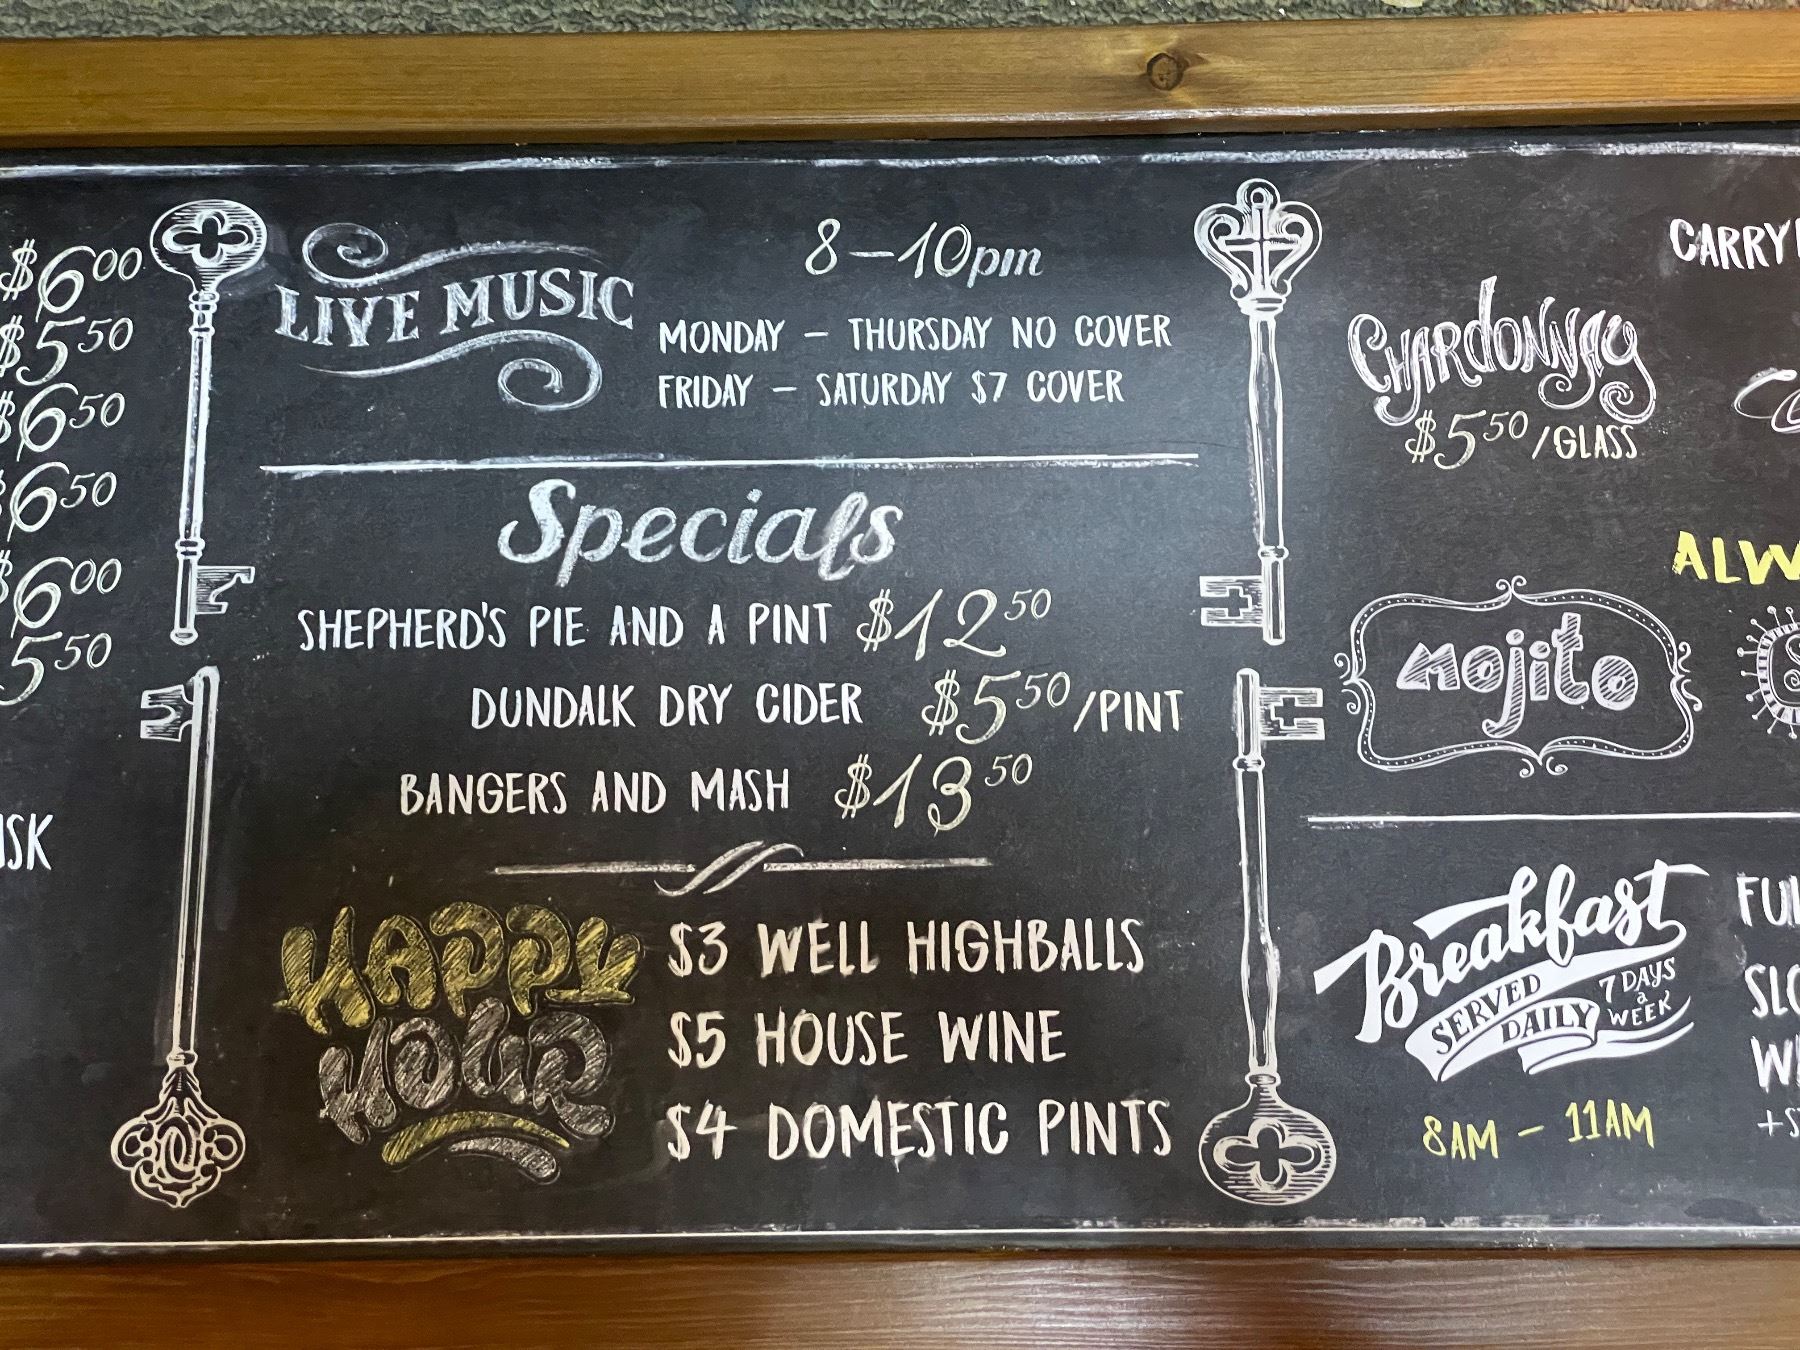 $6.00
$5.50
$6.50
$6.50
$6.00
5.50
LIVE MUSIC
8-10pm
MONDAY - THURSDAY NO COVER
FRIDAY - SATURDAY $7 COVER
Specials
SHEPHERD'S PIE AND A PINT $12.50
DUNDALK DRY CIDER $5.50/PINT
BANGERS AND MASH $13.50
HAPPY
HOUR
$3 WELL HIGHBALLS
$5 HOUSE WINE
$4 DOMESTIC PINTS
CHARDONNAY
$5.50/GLASS
mojito
Breakfast
SERVED
DAILY
7 DAYS
a
WEEK
8AM - 11AM